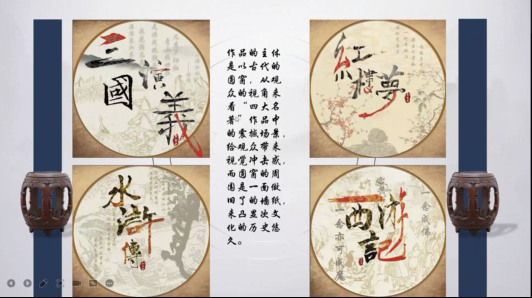 三國演義
紅樓夢
作品的主体
是以古代的
圆窗，从观
众的视角来
看“四大名
著”作品中
的震撼场景，
给观众带来
视觉冲击感，
而圆窗的周
围是一面做
旧的墙纸，
来凸文
化的历史悠
久。
水滸傳
西游記
一念成佛
一念亦可成魔